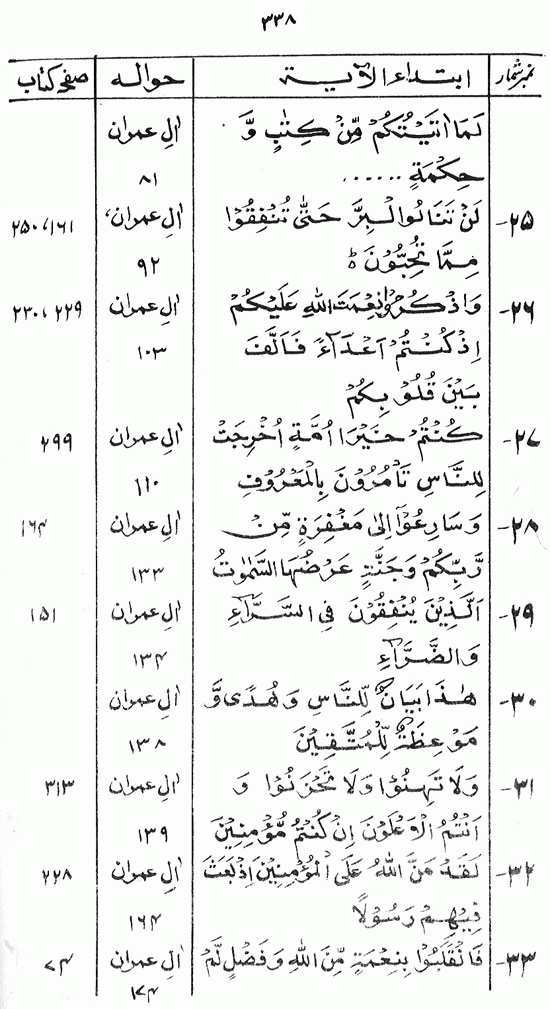 ۳۳۸
نمبر شمار ابتداء الآیة حواله صفحہ کتاب
لَمَا اٰتَیْتُكُمْ مِّنْ كِتٰبٍ وَّ اٰلِ عمران
حِكْمَةٍ ...... ۸۱
۲۵- لَنْ تَنَالُوا الْبِرَّ حَتّٰی تُنْفِقُوْا اٰلِ عمران، ۱۶۱، ۲۵۰
مِمَّا تُحِبُّوْنَ ط ۹۲
۲۶- وَاذْكُرُوْا نِعْمَتَ اللهِ عَلَیْكُمْ اٰلِ عمران ۲۲۹، ۲۳۰
اِذْ كُنْتُمْ اَعْدَآءً فَاَلَّفَ ۱۰۳
بَیْنَ قُلُوْبِكُمْ
۲۷- كُنْتُمْ خَیْرَ اُمَّةٍ اُخْرِجَتْ اٰلِ عمران ۲۹۹
لِلنَّاسِ تَاْمُرُوْنَ بِالْمَعْرُوْفِ ۱۱۰
۲۸- وَسَارِعُوْٓا اِلٰی مَغْفِرَةٍ مِّنْ اٰلِ عمران ۱۶۴
رَّبِّكُمْ وَجَنَّةٍ عَرْضُهَا السَّمٰوٰتُ ۱۳۳
۲۹- الَّذِیْنَ یُنْفِقُوْنَ فِی السَّرَّآءِ اٰلِ عمران ۱۵۱
وَالضَّرَّآءِ ۱۳۴
۳۰- هٰذَا بَیَانٌ لِّلنَّاسِ وَهُدًی وَّ اٰلِ عمران
مَوْعِظَةٌ لِّلْمُتَّقِیْنَ ۱۳۸
۳۱- وَلَا تَهِنُوْا وَلَا تَحْزَنُوْا وَ اٰلِ عمران ۳۱۳
اَنْتُمُ الْاَعْلَوْنَ اِنْ كُنْتُمْ مُّؤْمِنِیْنَ ۱۳۹
۳۲- لَقَدْ مَنَّ اللهُ عَلَی الْمُؤْمِنِیْنَ اِذْ بَعَثَ اٰلِ عمران ۲۲۸
فِیْهِمْ رَسُوْلًا ۱۶۴
۳۳- فَانْقَلَبُوْا بِنِعْمَةٍ مِّنَ اللهِ وَفَضْلٍ لَّمْ اٰلِ عمران ۷۴
۱۷۴